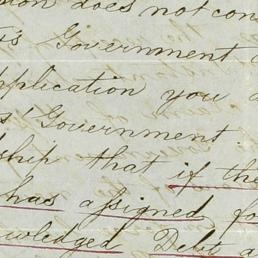 ion does not con
's Government a
pplication you a
s' Government.
dship that if the
has assigned fo
owledged Debt a